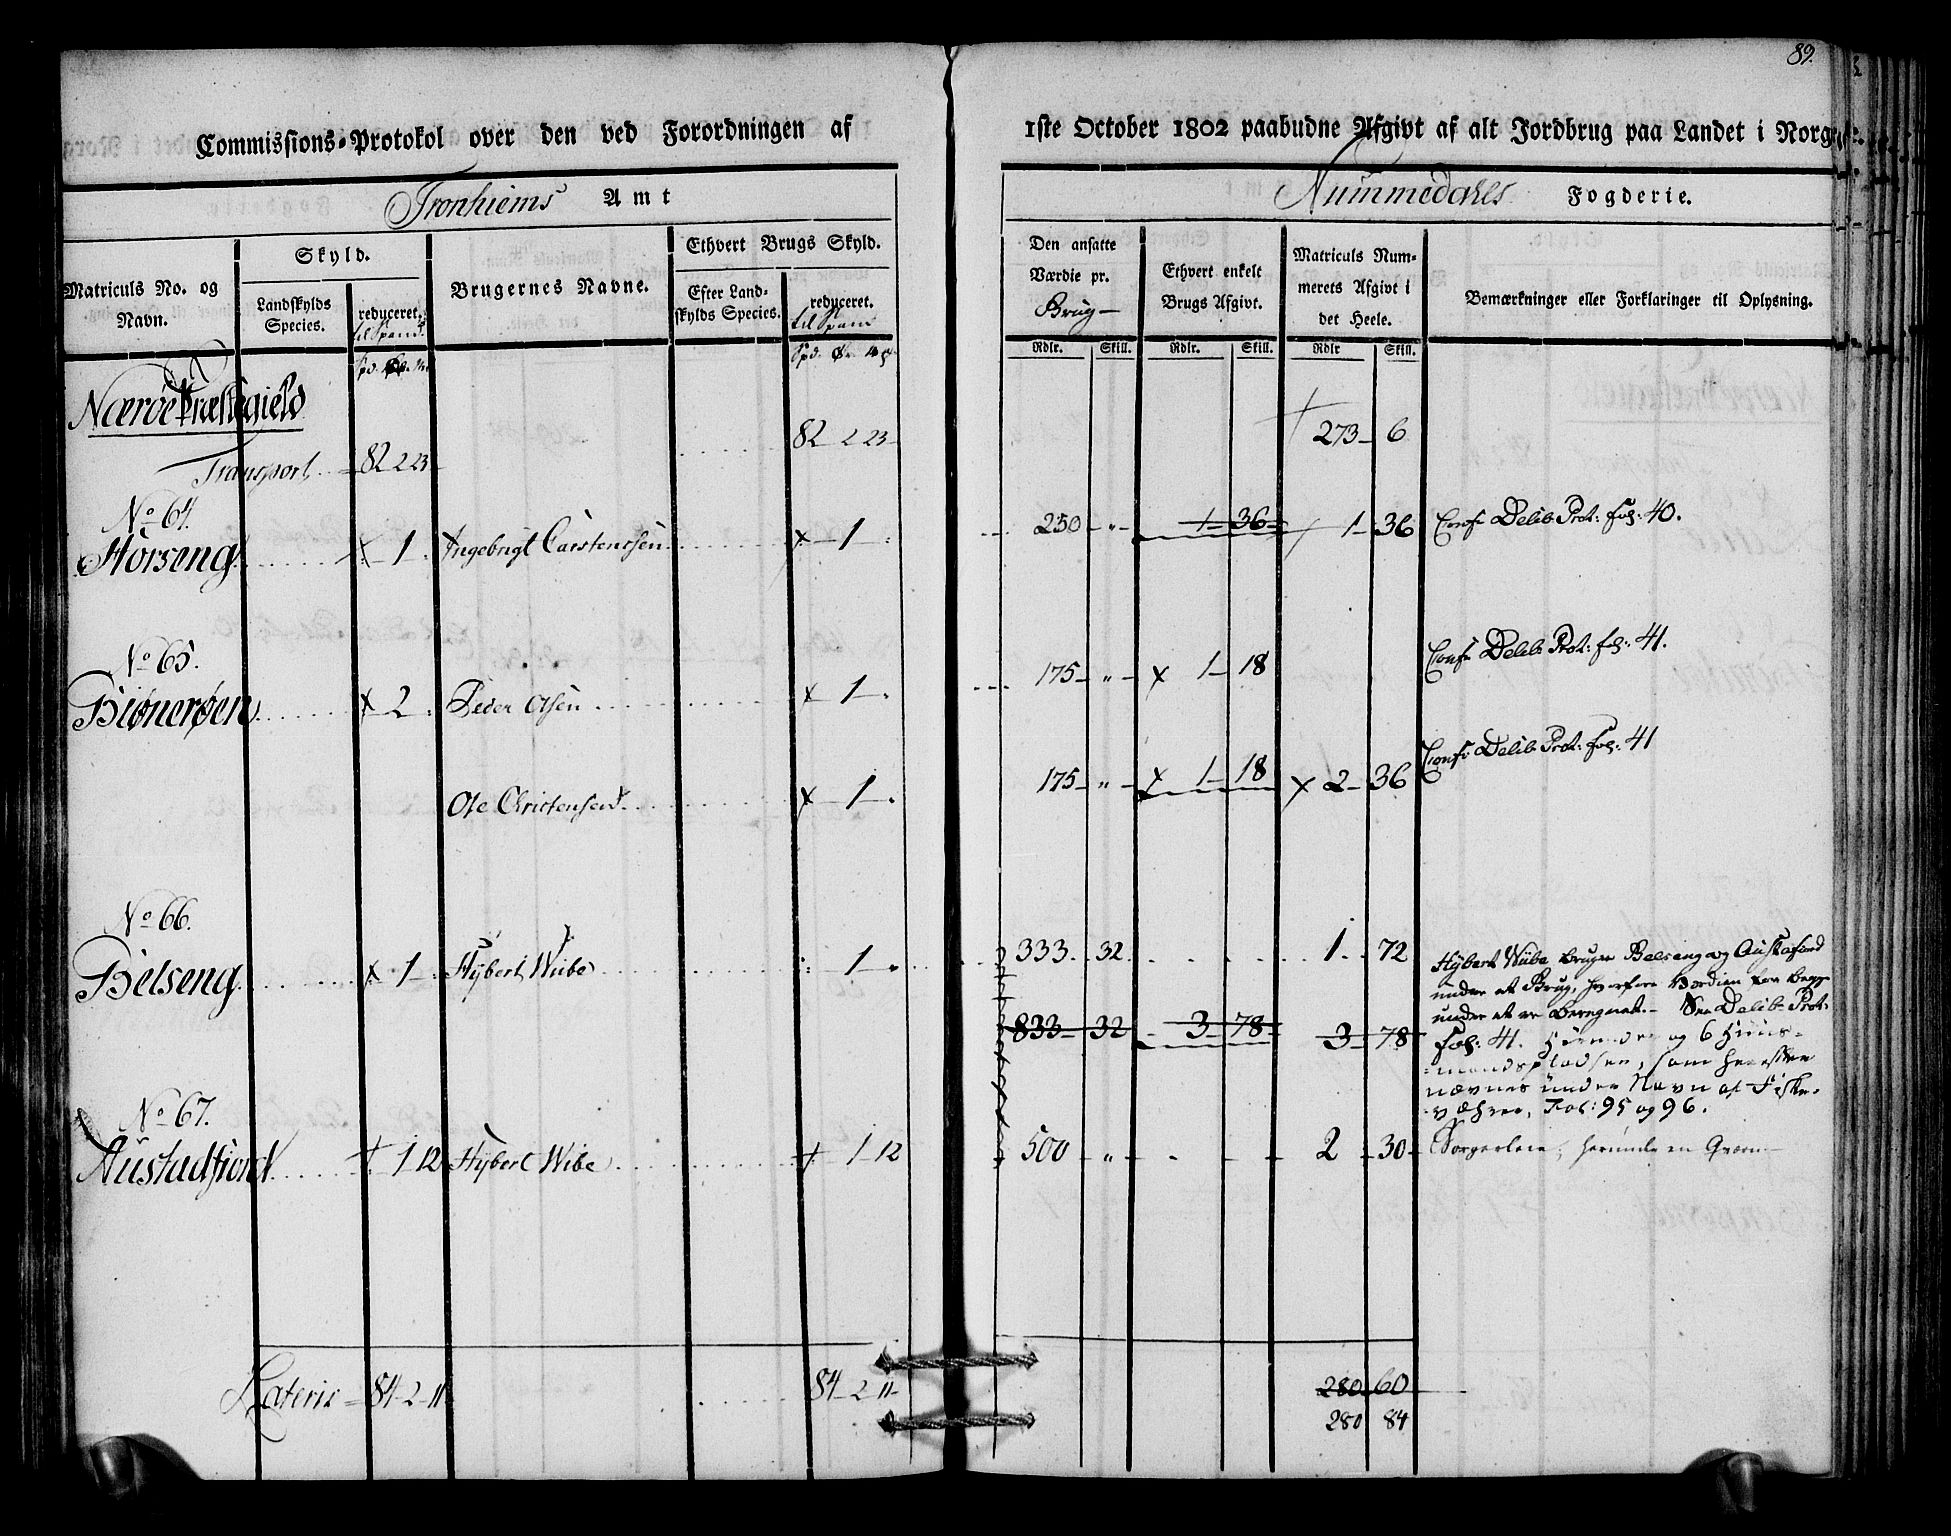 89.
Commissions-Protokol over den ved Forordningen af
1ste October 1802 paabudne Afgivt af alt Jordbrug paa Landet i Norge
Tronhiems Amt
Nummedahls Fogderie.
Matriculs No. og Navn.
Skyld.
Landskylds Species.
reduceret til Spand
Brugernes Navne.
Ethvert Brugs Skyld.
Efter Landskylds Species.
reduceret. til Spand
Den ansatte Værdie pr. Brug
Ethvert enkelt Brugs Afgivt.
Matriculs Nummerets Afgivt i det Heele.
Bemærkninger eller Forklaringer til Oplysning.
Rdlr. Skill. Rdlr. Skill. Rdlr Skill.
Nærøe Præstegield
Transport 82 2 23 82 2 23 273 6
No 64.
Horseng 1 Ingebrigt Carstenssen 1 250 " 1 36 1 36 Conf Delib Prot: fol: 40.
No 65.
Biønerøen 2 Peder Olsen 1 175 " 1 18 Conf Delib Prot: fol: 41.
Ole Christensen 1 175 " 1 18 2 36 Conf Delib Prot: fol: 41
No 66.
Belseng 1 Hybert Wiibe 1 333. 32 1. 72
833 32 3 78 3 78
Hybert Wiibe bruger Belseng og Austafiord
under et Brug, hvorfore Værdien for begge
under et er beregnet. See Delib Prot:
fol: 41. Herunder og 6 Huus-
mandspladser, som herefter
nævnes under Navn af Fiske-
væhrer, Fol: 95 og 96.
No 67.
Austadfiord 1 12 Hybert Wibe 1 12 500 " 2 30 herunder en Qværn
Lateris 84 2 11 84 2 11 280 60
280 84